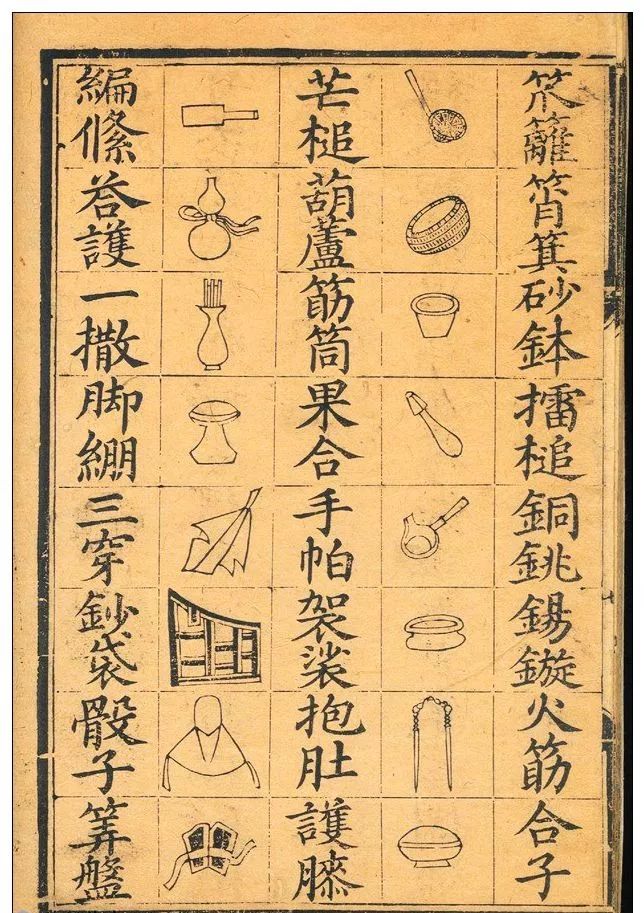 笊籬筲箕砂鉢擂槌銅銚錫鏇火筯合子
芒槌葫蘆筯筒果合手帕袈裟抱肚護膝
編絛荅護一撒脚繃三穿鈔袋骰子筭盤